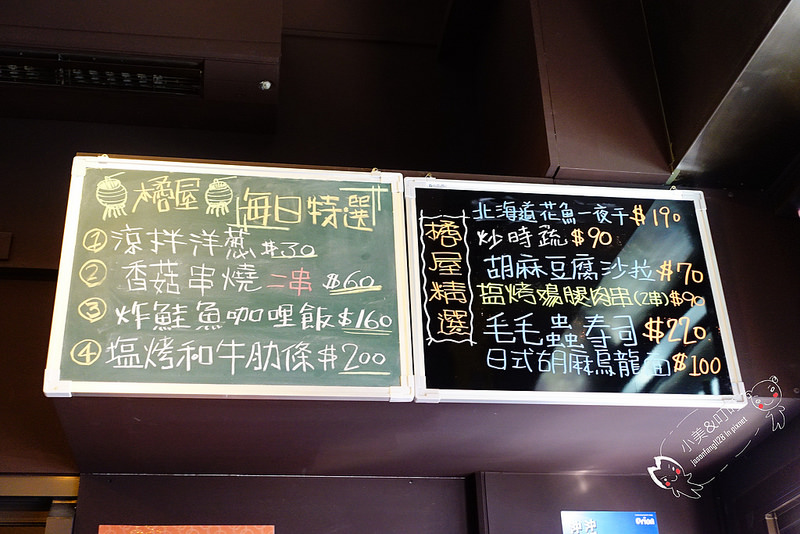 橘屋 每日特選
① 涼拌洋蔥 $30
② 香菇串燒 二串 $60
③ 炸鮭魚咖哩飯 $160
④ 塩烤和牛肋條 $200
橘屋精選
北海道花魚一夜干 $190
炒時蔬 $90
胡麻豆腐沙拉 $70
塩烤鷄腿肉串(2串) $90
毛毛蟲壽司 $220
日式胡麻烏龍面 $100
小美&叮
jasonfang1128 in pixnet
Orion